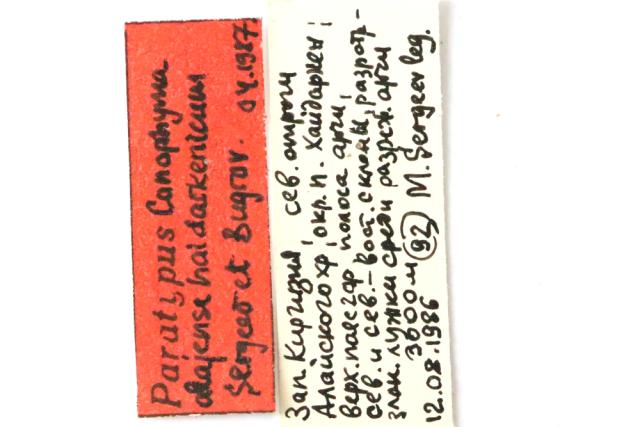 Paratypus Conophyma
alajense haidarkenicum
Sergeev et Bugrov. 04.1987.
Зап. Киргизия, сев. отроги
Алайского хр., окр. п. Хайдаркен;
верх. пояс гор, полоса арчи,
сев. и сев.-вост. склоны, разнотр-
злак. лужки среди разреж. арчи
3600 м (92)
12.08.1986 M. Sergeev leg.